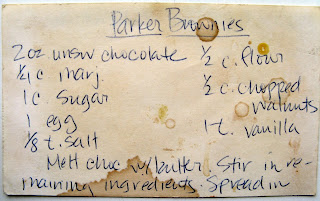 Parker Brownies
2 oz. unsw chocolate
1/4 c marj.
1 c. sugar
1 egg
1/8 t. salt
1/2 c. flour
1/2 c. chopped
walnuts
1 t. vanilla
Melt choc w/butter. Stir in re-
maining ingredients. Spread in